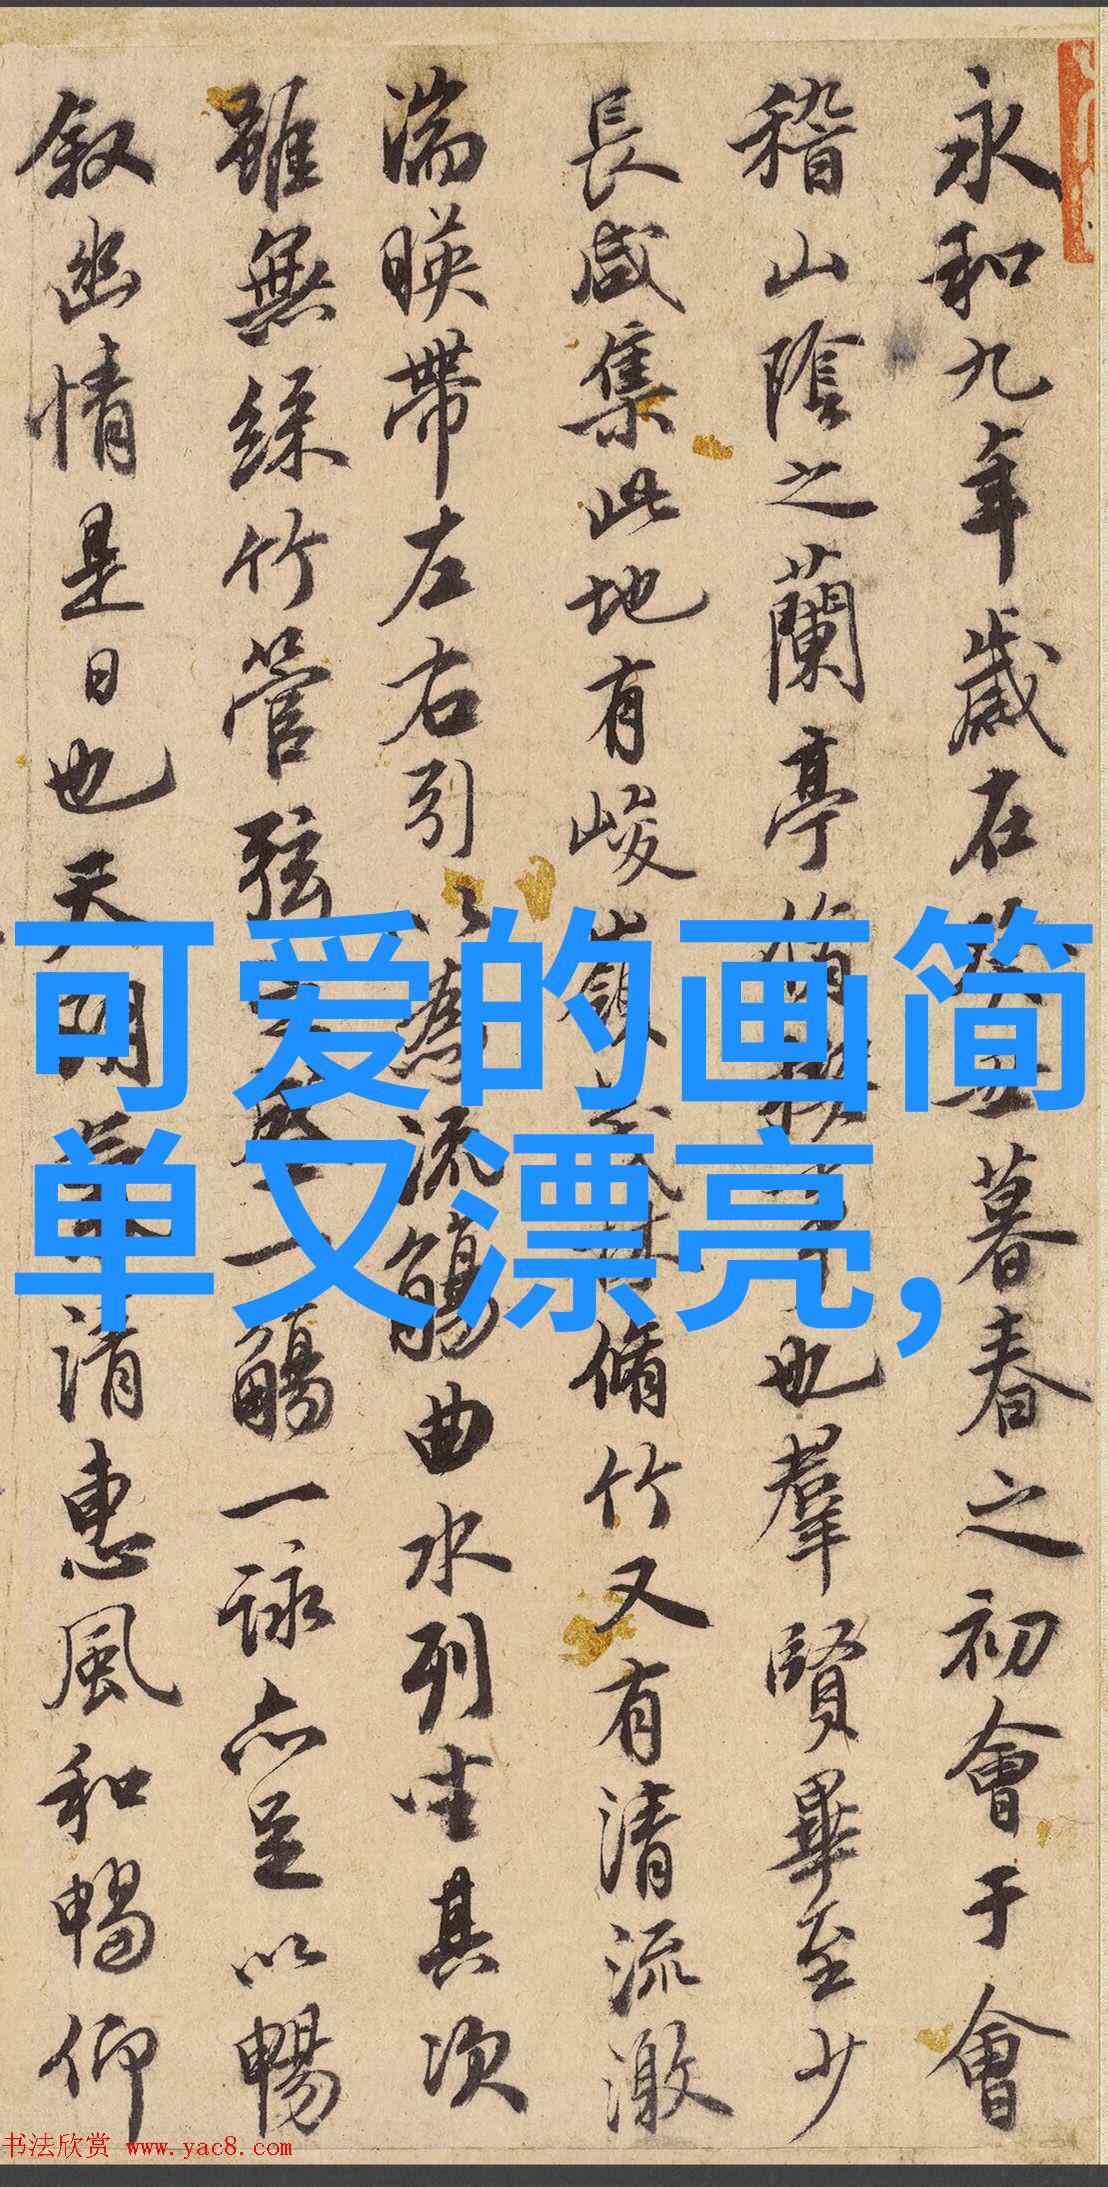 永和九年歲在癸丑暮春之初會于會
稽山陰之蘭亭脩稧事也羣賢畢至少
長咸集此地有峻嶺茂林脩竹又有清流激
湍暎帶左右引以為流觴曲水列坐其次
雖無絲竹管弦之盛一觴一詠亦足以暢
叙幽情是日也天朗氣清惠風和暢仰
可爱的画简
单又漂亮,
书法欣赏 www.yac8.com